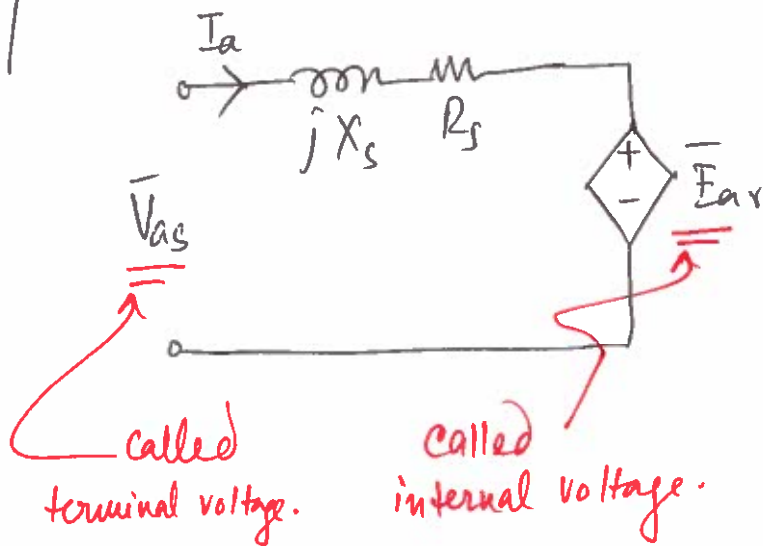 Ia
jXs Rs
+
-
V̄as
Ēar
called
terminal voltage.
called
internal voltage.